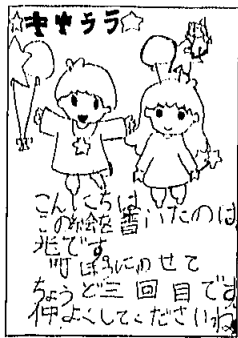 ☆キキララ☆
こんにちは
この絵を書いたのは
兆です
町ぼうにのせて
ちょうど三回目です
仲よくしてくださいね